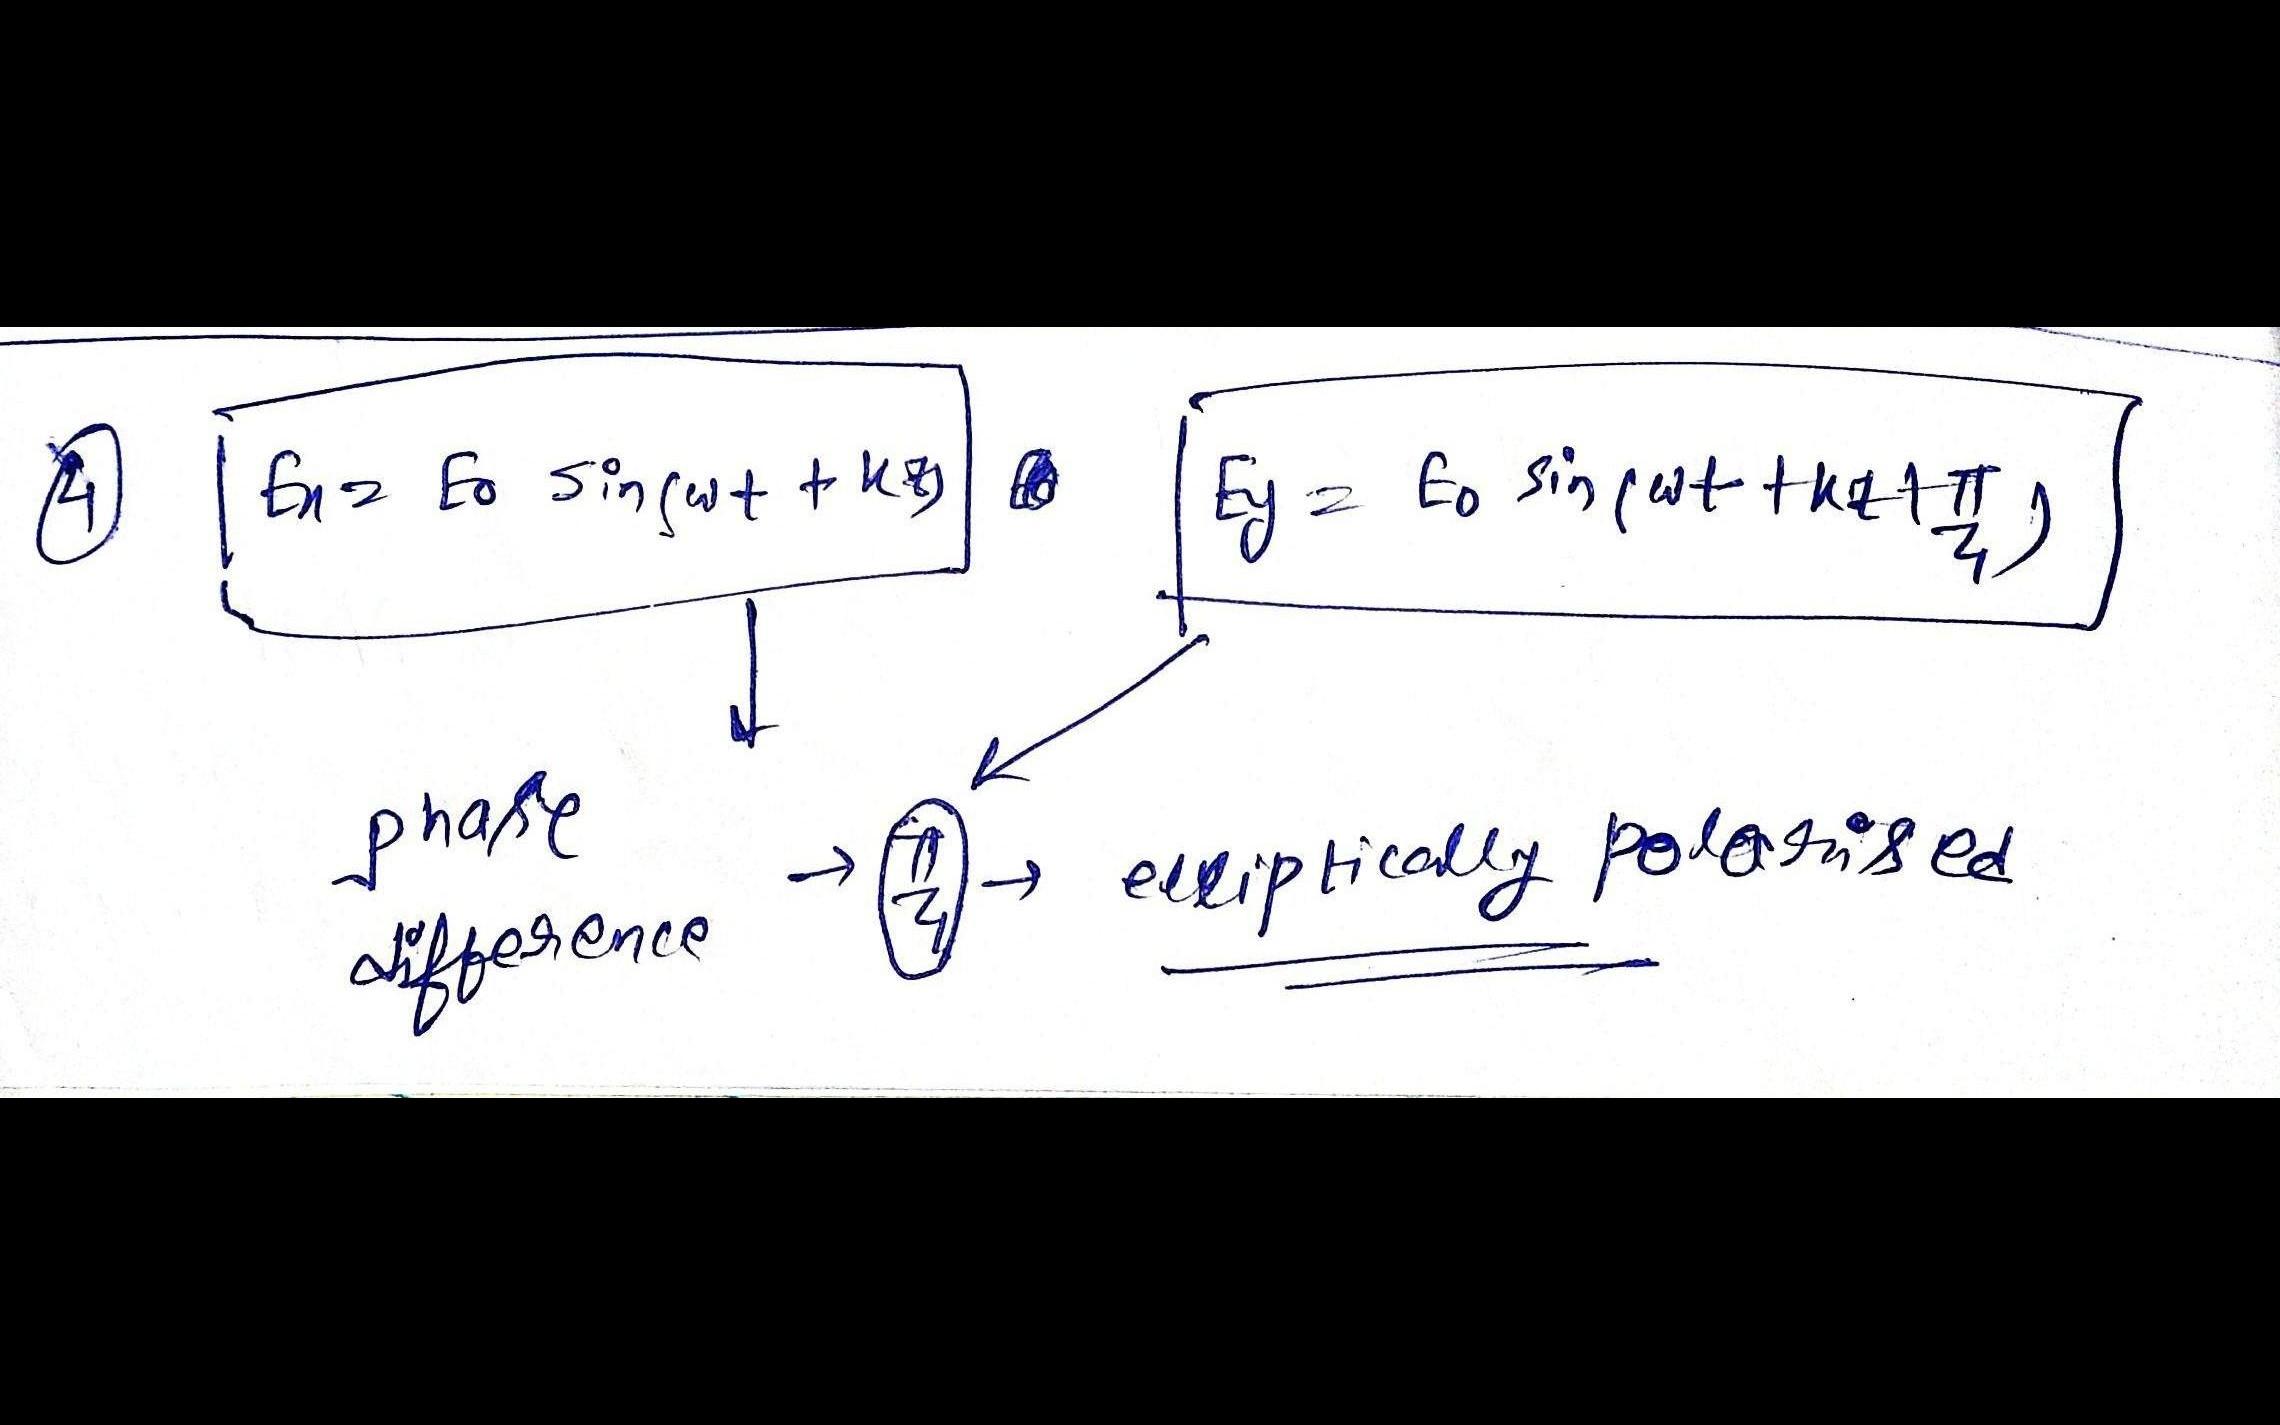 4 Ex = E0 sin(ωt + kz) Ey = E0 sin(ωt + kz + π/4)
phase
difference → π/4 → elliptically polarised